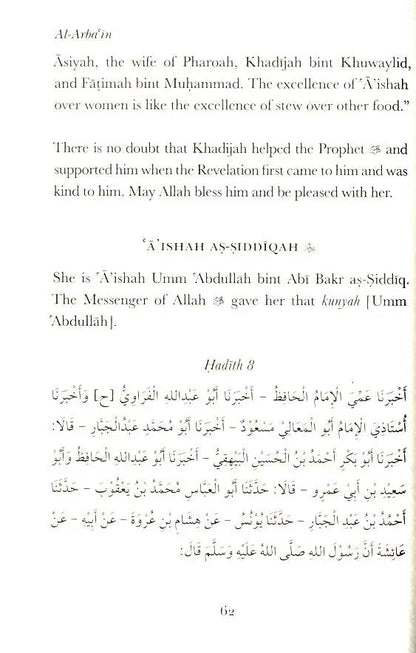 Al-Arbaʿīn
Āsiyah, the wife of Pharoah, Khadījah bint Khuwaylid,
and Fāṭimah bint Muḥammad. The excellence of ʿĀ’ishah
over women is like the excellence of stew over other food.”
There is no doubt that Khadījah helped the Prophet ﷺ and
supported him when the Revelation first came to him and was
kind to him. May Allah bless him and be pleased with her.
ʿĀ’ISHAH AṢ-ṢIDDĪQAH
She is ʿĀ’ishah Umm ʿAbdullāh bint Abī Bakr aṣ-Ṣiddīq.
The Messenger of Allah ﷺ gave her that kunyah [Umm
ʿAbdullāh].
Ḥadīth 8
أَخْبَرَنَا عَمِّيَ الْإِمَامُ الْحَافِظُ – أَخْبَرَنَا أَبُوْ عَبْدِاللهِ الْفَرَاوِيُّ [ح] وَأَخْبَرَنَا
أُسْتَاذِيَ الْإِمَامُ أَبُو الْمَعَالِيْ مَسْعُوْدٌ – أَخْبَرَنَا أَبُو مُحَمَّدٍ عَبْدُالْجَبَّارِ – قَالَا:
أَخْبَرَنَا أَبُوْ بَكْرٍ أَحْمَدُ بْنُ الْحُسَيْنِ الْبَيْهَقِيُّ – أَخْبَرَنَا أَبُوْ عَبْدِاللهِ الْحَافِظُ وَأَبُوْ
سَعِيْدِ بْنِ أَبِيْ عَمْرٍو – قَالَا: حَدَّثَنَا أَبُو الْعَبَّاسِ مُحَمَّدُ بْنُ يَعْقُوْبَ – حَدَّثَنَا
أَحْمَدُ بْنُ عَبْدِ الْجَبَّارِ – حَدَّثَنَا يُوْنُسُ – عَنْ هِشَامِ بْنِ عُرْوَةَ – عَنْ أَبِيْهِ – عَنْ
عَائِشَةَ أَنَّ رَسُوْلَ اللهِ صَلَّى اللهُ عَلَيْهِ وَسَلَّمَ قَالَ:
62